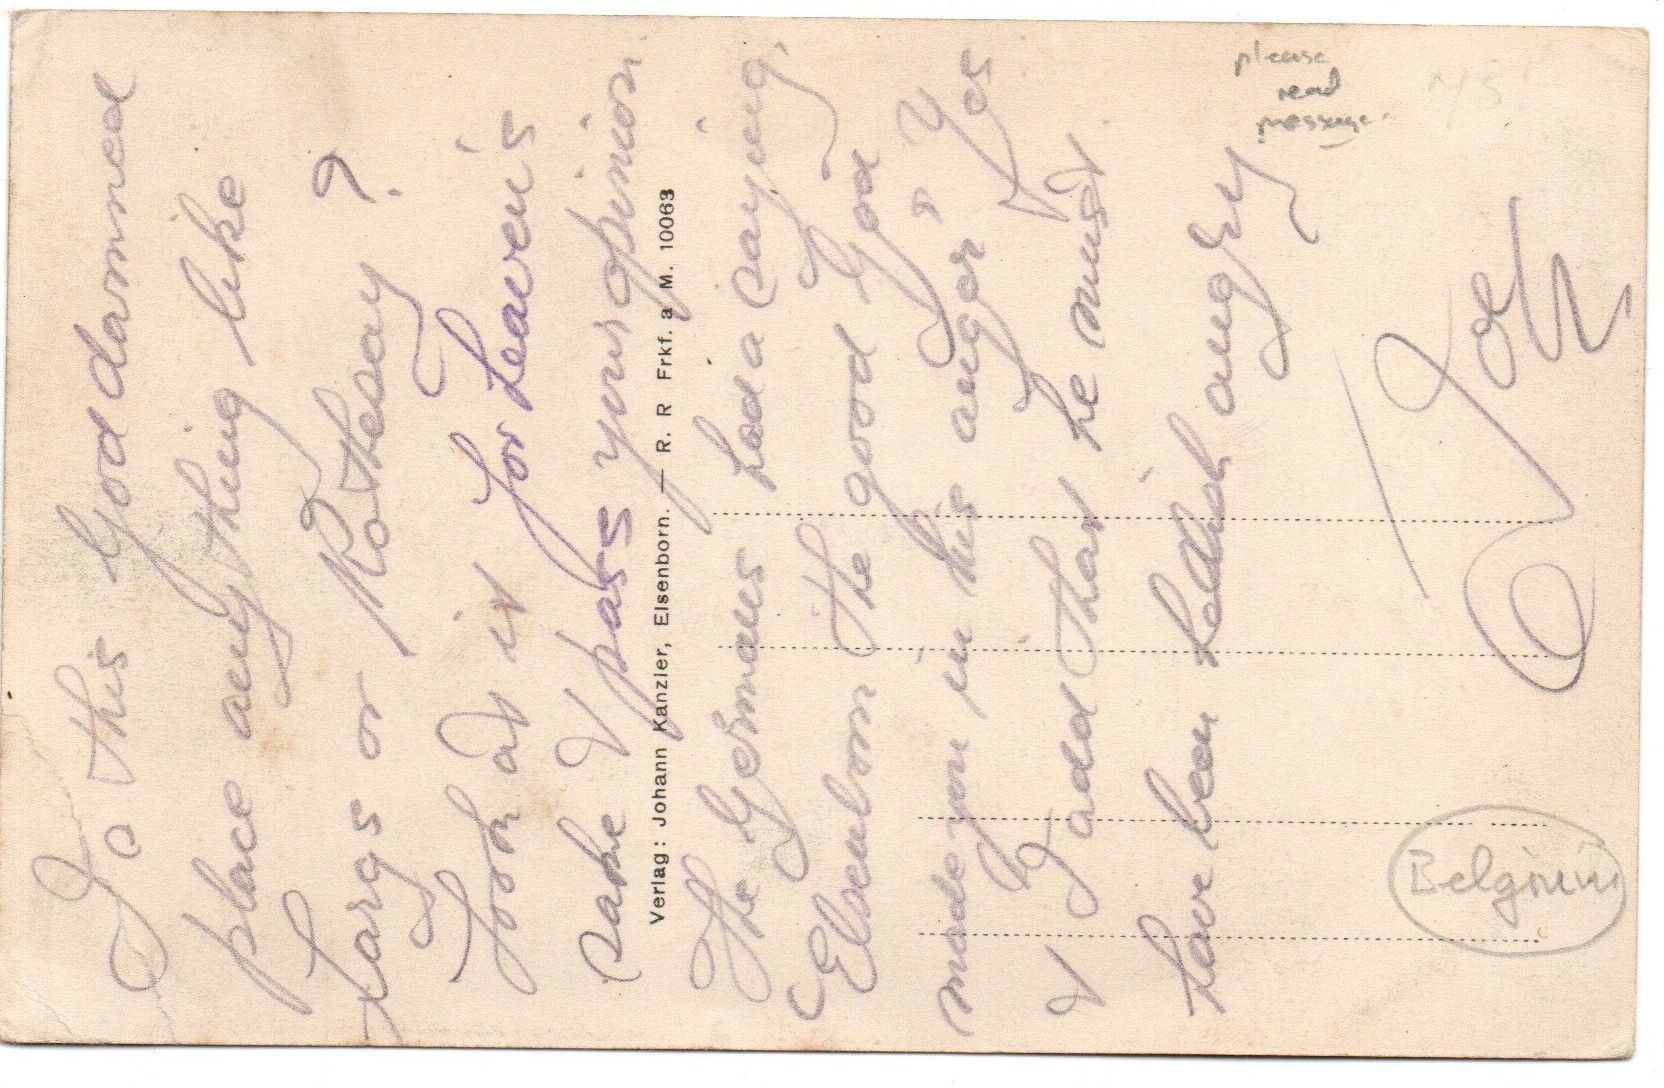 Is this God dammed
place any thing like
Largs or Rothesay ?
Look at it for heaven's
sake & pass your opinion.
Verlag: Johann Kanzler, Elsenborn. — R. R Frkf. a. M. 10063
The Germans had a saying,
Elsenborn the good God
made you in his anger, Yes
& I add that he must
have been hellish angry
Joe
please
read
message.
Belgium